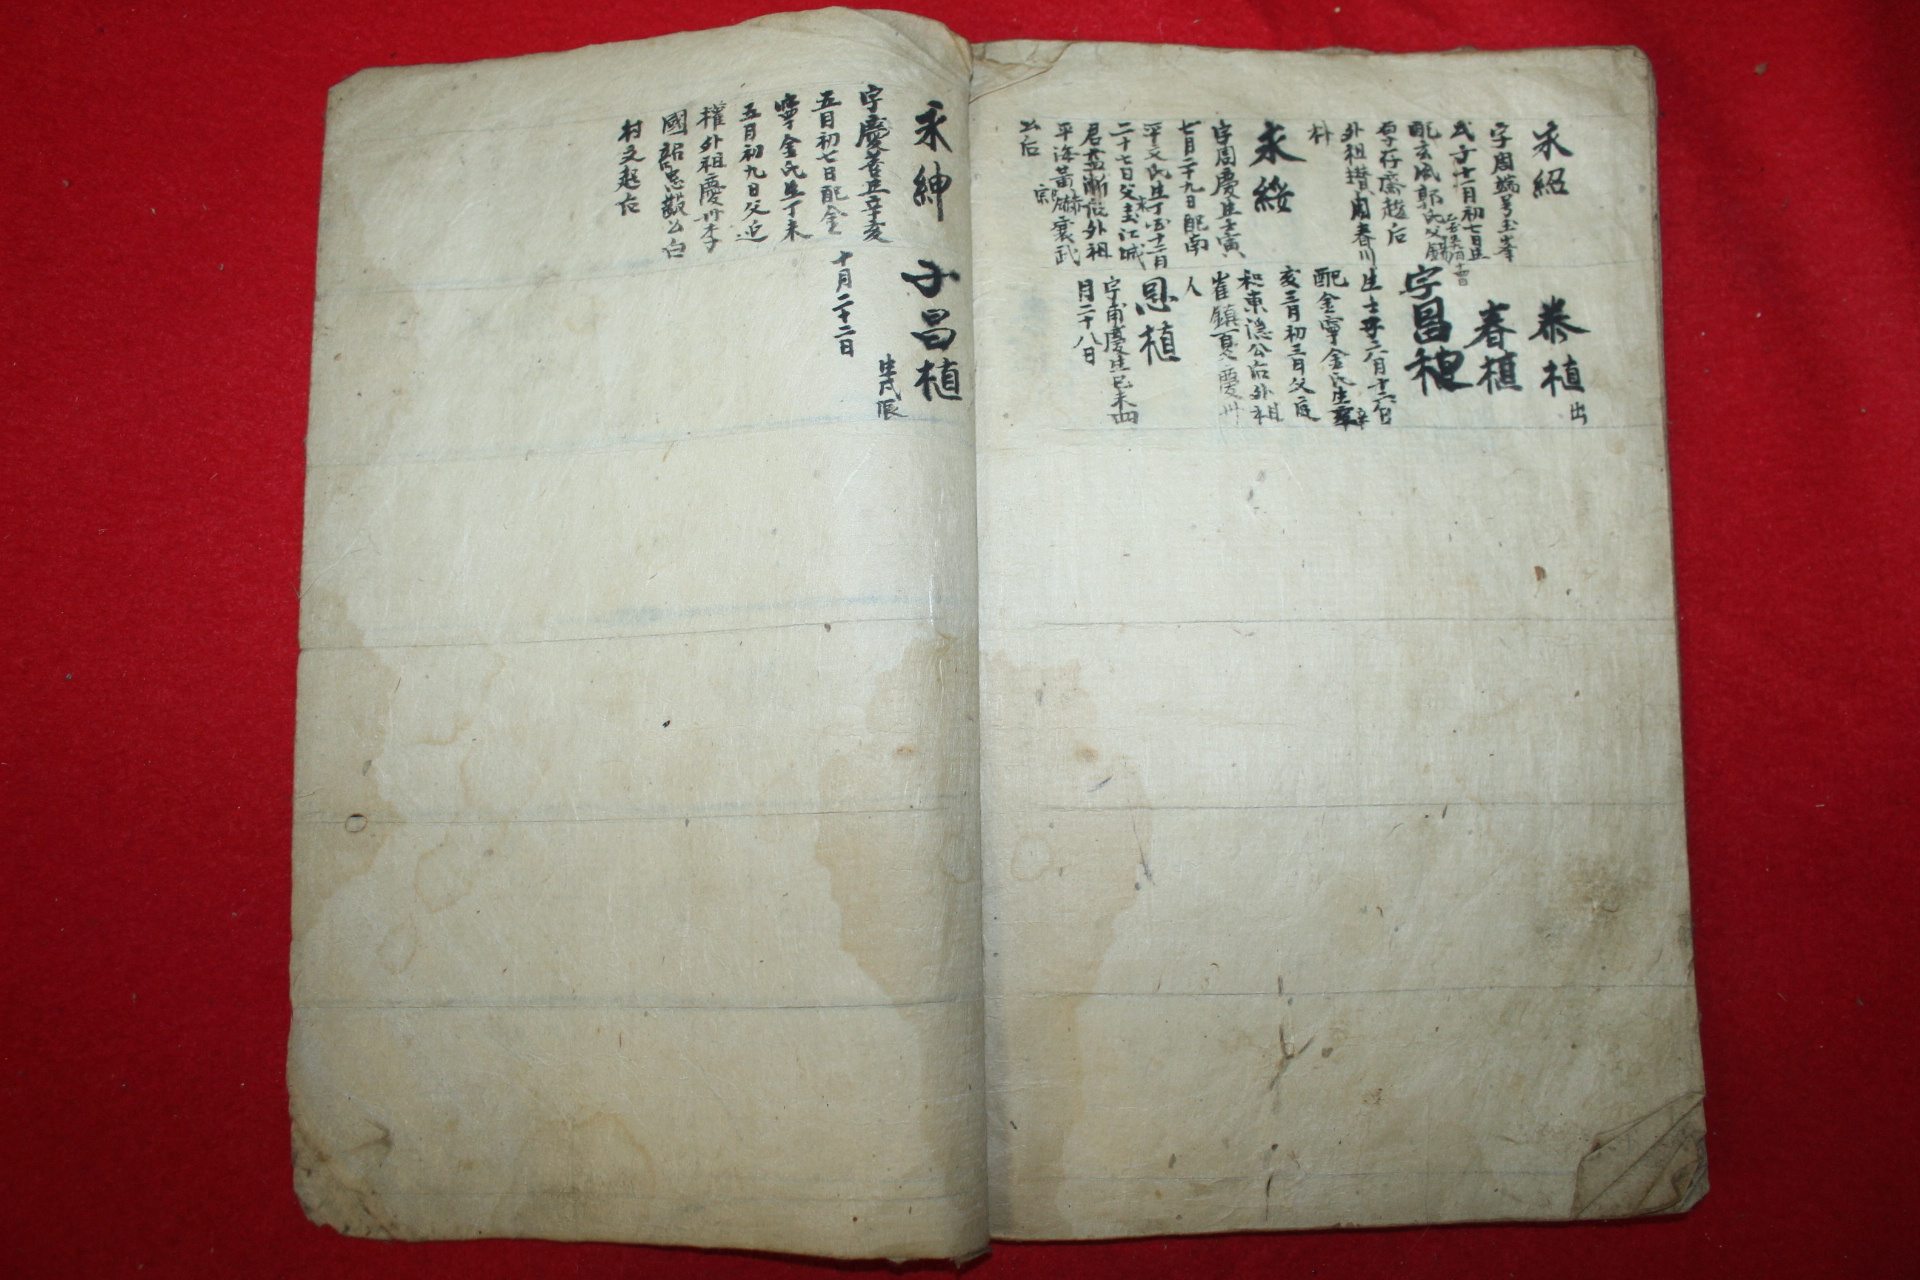 永紹
字周端号玉峯
戊子十一月初七日生
配玄風郭氏父錫
存齋趙后
外祖 周春川
朴
永綏
字周慶生壬寅
七月二十九日配南
平文氏生丁酉十二月
二十七日父玉江城
君益漸后外祖
平海黃 襄武
公后
泰植
出
春植
字昌植
生士 六月十六日
配金寧金氏生辛
亥三月初三日父庭
和東隱公后外祖
崔鎮夏慶州
人
思植
字甫慶生己未四
月二十八日
永紳
字慶善生辛亥
五月初七日配金
寧金氏生丁未
五月初九日父迫
權外祖慶州李
國 忠毅公白
村文起后
子昌植
生戊辰
十月二十二日